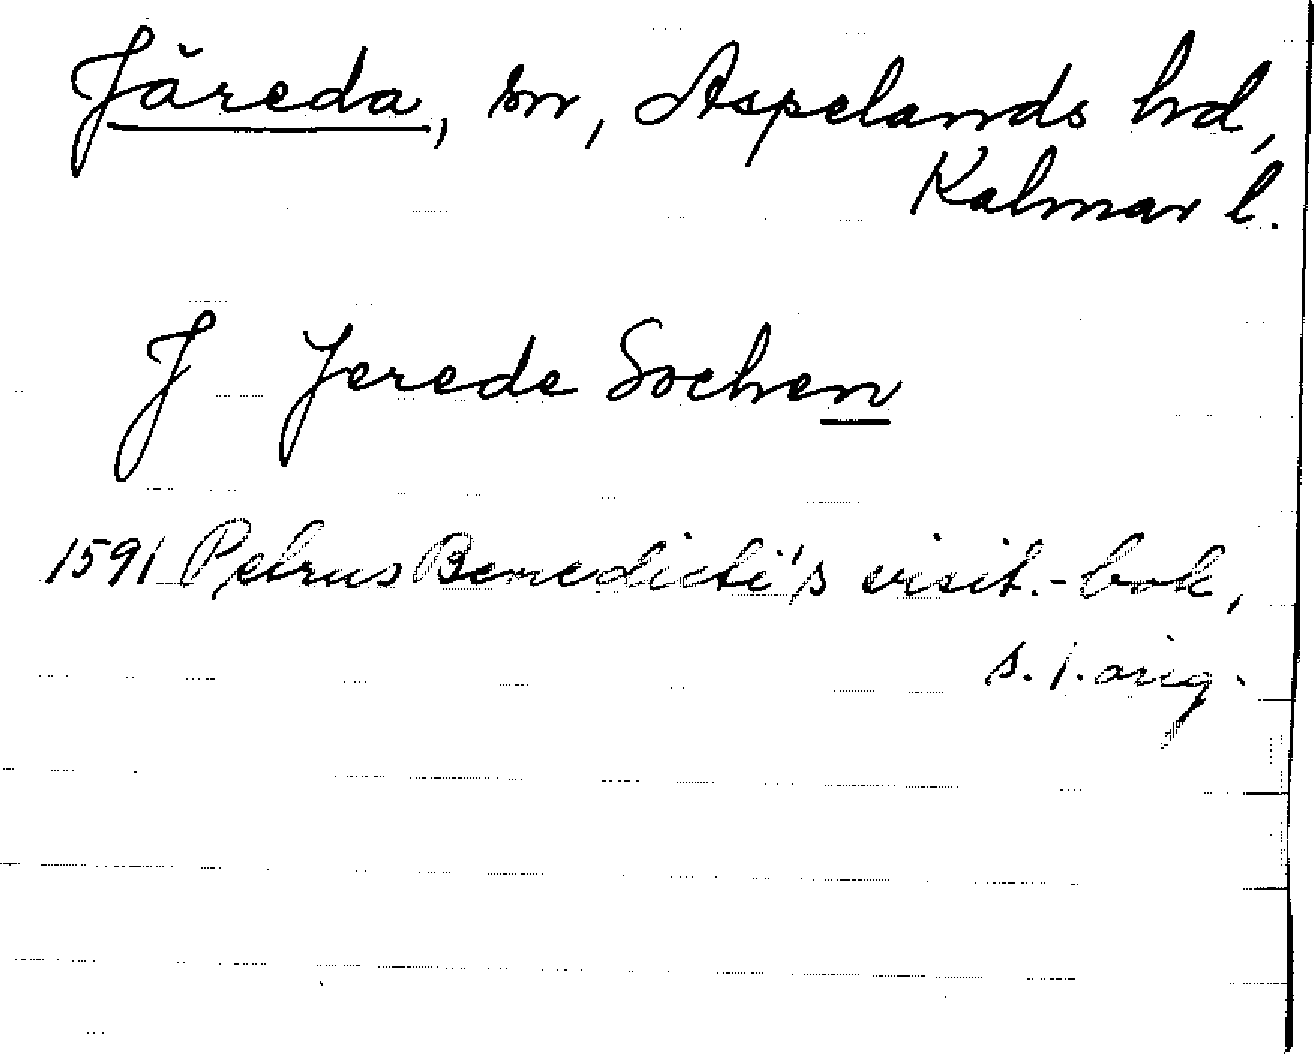 Järeda, sn, Aspelands hd,
Kalmar l.
J Jerede Sochen
1591 Petrus Benedicti's visit.-bok,
s. 1. orig.